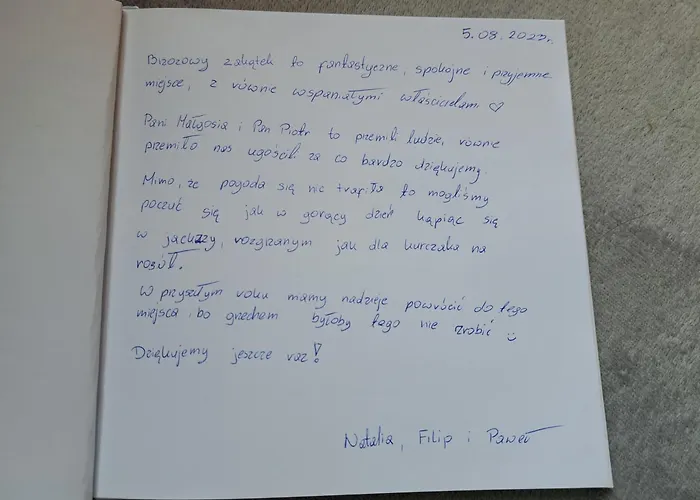 5.08.2023r.
Brzozowy zakątek to fantastyczne, spokojne i przyjemne
miejsce, z równie wspaniałymi właścicielami ♡
Pani Małgosia i Pan Piotr to przemili ludzie, równie
przemiło nas ugościli za co bardzo dziękujemy.
Mimo, że pogoda się nie trafiła to mogliśmy
poczuć się jak w gorący dzień kąpiąc się
w jacuzzy, rozgrzanym jak dla kurczaka na
rosół.
W przyszłym roku mamy nadzieje powrócić do tego
miejsca bo grzechem byłoby tego nie zrobić ☺
Dziękujemy jeszcze raz!
Natalia, Filip i Paweł